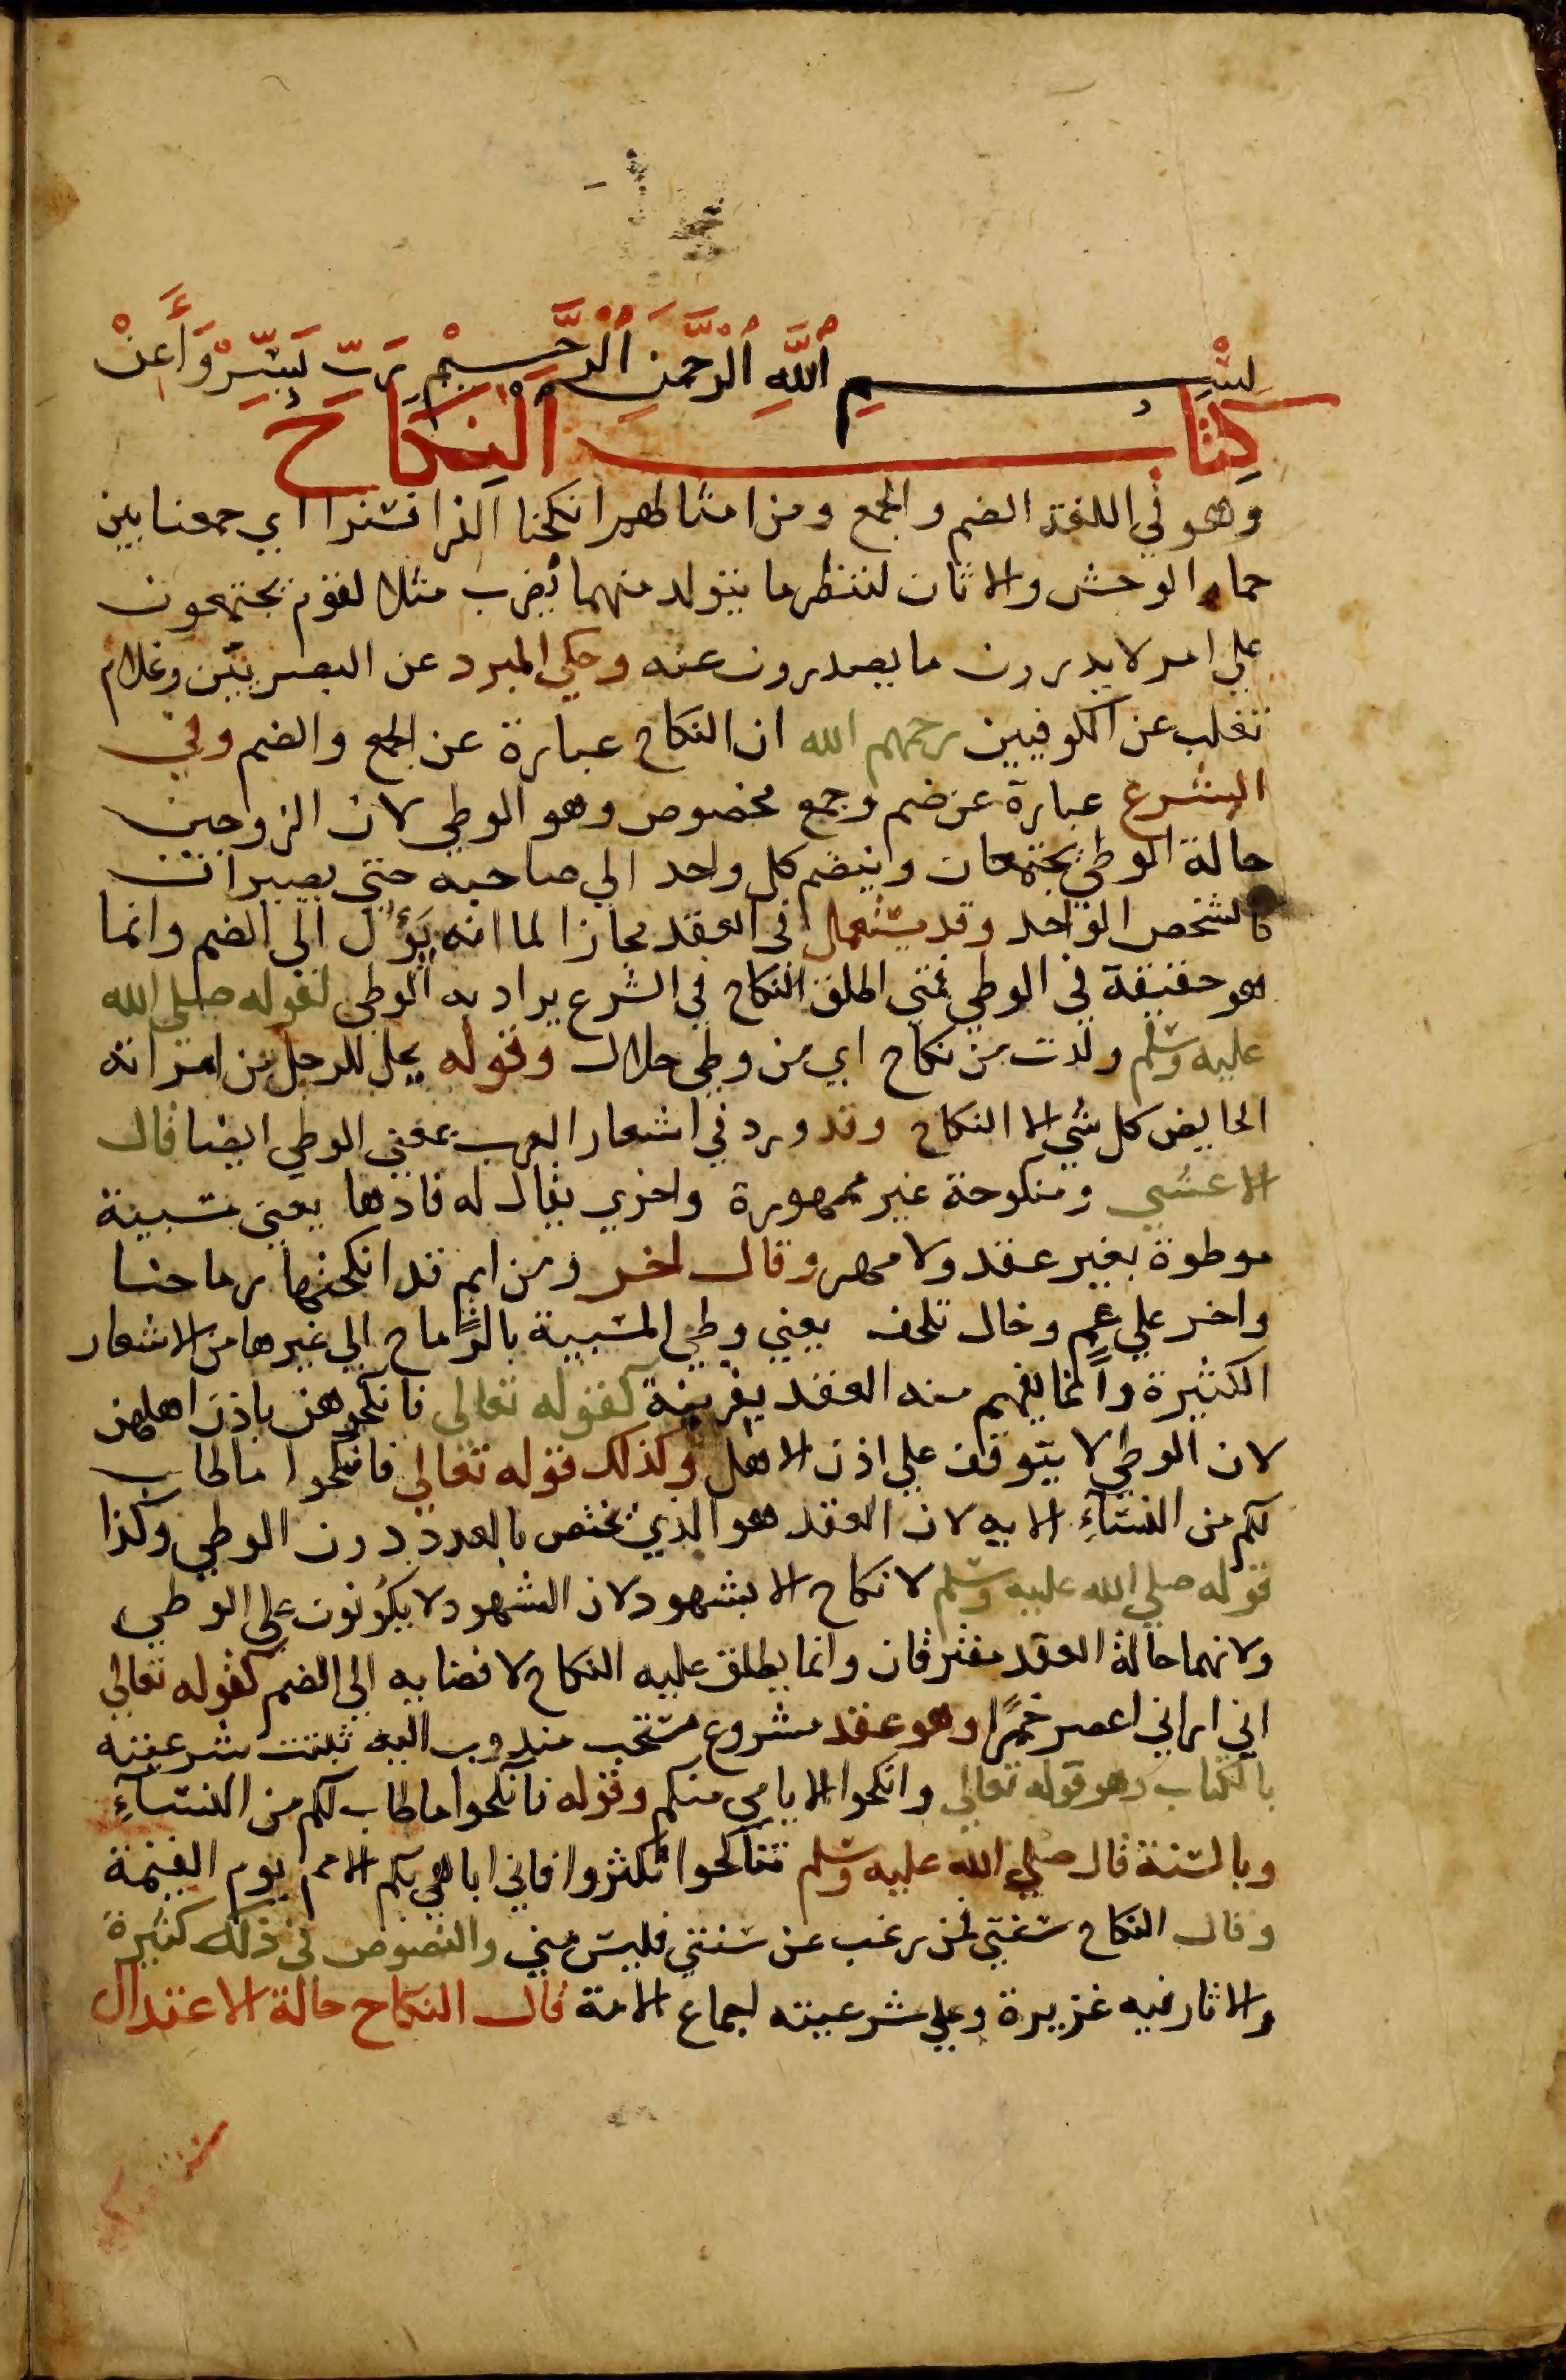 بِسْمِ ٱللَّهِ ٱلرَّحْمَنِ ٱلرَّحِيْمِ رَبِّ يَسِّرْ وَأَعِنْ
كِتَابُ النِّكَاحِ
وهو في اللغة الضم والجمع ومن امثالهم انكحنا الفرا فسنرا اي جمعنا بين
حمار الوحش والاتان لننظر ما يتولد منهما يُضرب مثلا لقوم يجتمعون
علي امر لا يدرون ما يصدرون عنه وحكي المبرد عن البصريين وغلام
ثعلب عن الكوفيين رحمهم الله ان النكاح عبارة عن الجمع والضم وفي
الشرع عبارة عن ضم وجمع مخصوص وهو الوطي لان الزوجين
حالة الوطي يجتمعان وينضم كل واحد الي صاحبه حتي يصيران
كالشخص الواحد وقد يستعمل في العقد مجازا لما انه يَؤُل الي الضم وانما
هو حقيقة في الوطي فمتي اطلق النكاح في الشرع يراد به الوطي لقوله صلي الله
عليه وسلم ولدت من نكاح اي من وطي حلال وقوله يحل للرجل من امراته
الحايض كل شي الا النكاح وقد ورد في اشعار العرب بمعني الوطي ايضا قال
الاعشي ومنكوحة غير ممهورة واخري يقال له فادها يعني مسبية
موطوة بغير عقد ولا مهر وقال اخر ومن ايم قد انكحتها رماحنا
واخر علي عم وخال تلهف يعني وطي المسبية بالرماح الي غيرها من الاشعار
الكثيرة وانما يفهم منه العقد بقرينة كقوله تعالي فانكحوهن باذن اهلهن
لان الوطي لا يتوقف علي اذن الاهل وكذلك قوله تعالي فانكحوا ما طاب
لكم من النسآءِ الايه لان العقد هو الذي يختص بالعدد دون الوطي وكذا
قوله صلي الله عليه وسلم لا نكاح الا بشهود لان الشهود لا يكونون علي الوطي
ولانهما حالة العقد مفترقان وانما يطلق عليه النكاح لافضايه الي الضم كقوله تعالي
اني اراني اعصر خمرًا وهو عقد مشروع مستحب مندوب اليه ثبتت شرعيته
بالكتاب وهو قوله تعالي وانكحوا الايامي منكم وقوله فانكحوا ما طاب لكم من النسآءِ
وبالسنة قال صلي الله عليه وسلم تناكحوا تكثروا فاني اباهي بكم الامم يوم القيمة
وقال النكاح سنتي فمن رغب عن سنتي فليس مني والنصوص في ذلك كثيرة
والاثار فيه غزيرة وعلي شرعيته اجماع الامة قال النكاح حالة الاعتدال